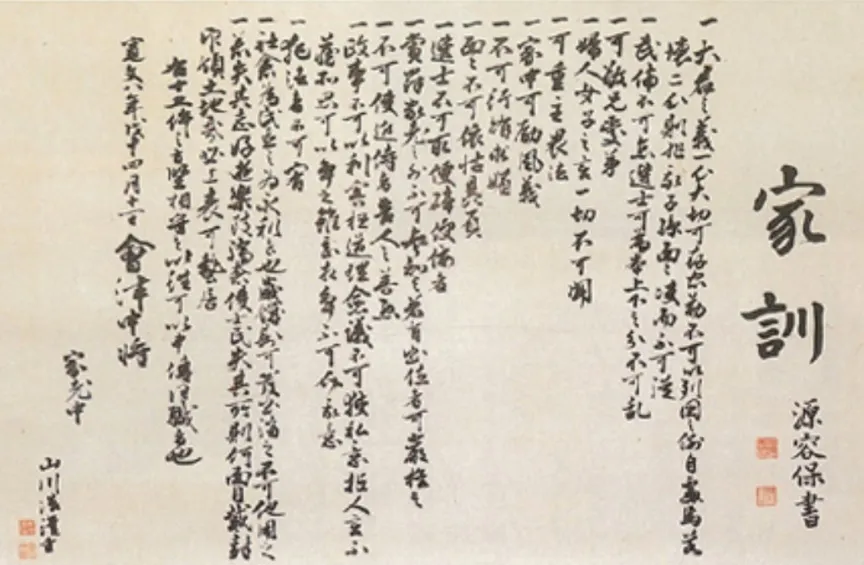 家訓
源容保書
一大君之義一心大切可存忠勤不可以列国之例自處焉若
懐二心則非我子孫面々決而不可従
一武備不可怠選士可為本上下之分不可乱
一可敬兄愛弟
一婦人女子之言一切不可聞
一可重主畏法
一家中可励風義
一不可行賄求媚
一面々不可依怙贔屓
一選士不可取便辟便佞者
一賞罰家老之外不可令知之若有出位者可厳格之
一不可使近侍者告人之善悪
一政事不可以利害枉道理僉議不可挟私意拒人言不
蔵所思可以争之雖甚相争不可介我意
一犯法者不可宥
一社倉為民置之為永利者也歳饑則可發出済之不可他用之
一若失其志好遊樂致驕奢使士民失其所則何面目戴封
印領土地哉必上表可蟄居
右十五件之旨堅相守之以往可以申傳同職者也
寛文八年戊申四月十一日 會津中将
家老中
山川浩謹書